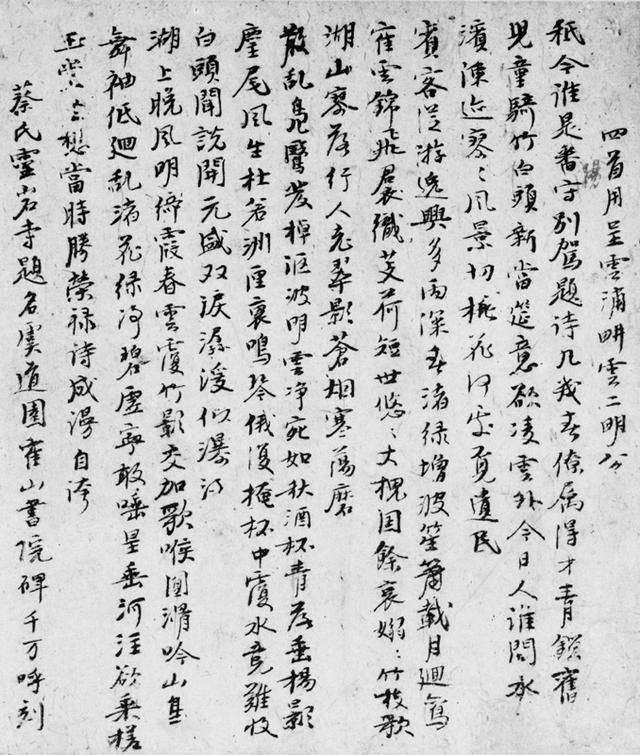 四首用呈雲浦畊雲二明公
秖今誰是書守別駕題诗几載春僚属得才青鎖舊
児童騎竹白頭新當筵意欲凌雲外今日人誰問水
濱陳迹寥〻風景切花何處覓遺民
賓客從游逸興多雨深春渚緑增波笙簫載月廻鴛
隺雲錦飛織芰荷短世悠〻大槐国餘哀嫋〻竹枝歌
湖山寥落行人充翠影蒼烟寒蕩磨
散乱鳧鷖發棹謳波明雲净宛如秋酒杯青落垂楊影
麈尾風生杜若洲匣裏鳴琴俄復掩杯中覆水竟難收
白頭聞説開元盛双淚潺湲似瀑流
湖上晚風明綺霞春雲覆竹影交加歌喉圓滑吟山鳥
舞袖低廻乱渚花緑净碧虚寧敢唾星垂河注欲乗槎
想當時勝榮禄诗成漫自誇
蔡氏靈岩寺題名虞道園隺山書院碑千万呼刻